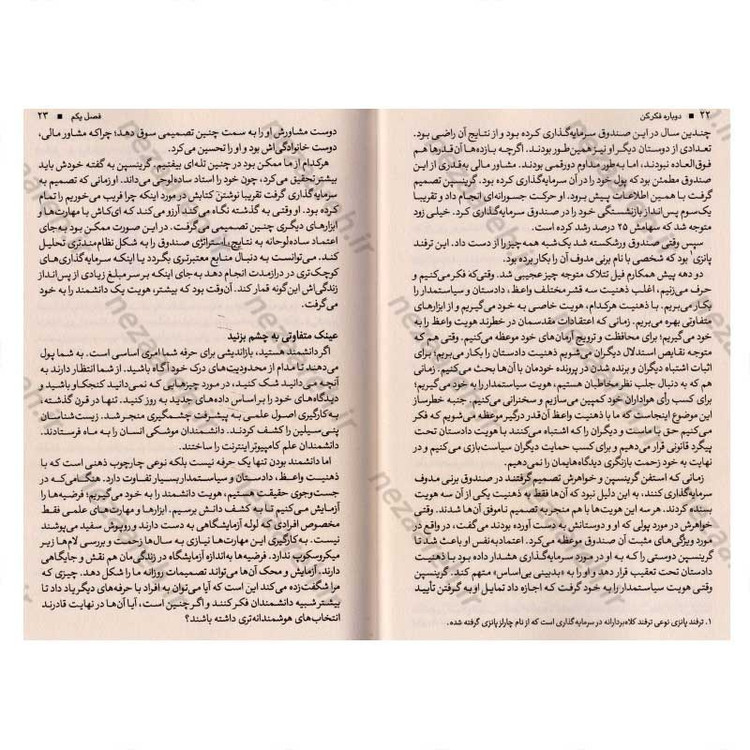 ۲۲ ■ دوباره فکر کن
چندین سال در این صندوق سرمایه‌گذاری کرده بود و از نتایج آن راضی بود.
تعدادی از دوستان دیگر او نیز همین‌طور بودند. اگرچه بازده‌ها آن‌قدرها هم
فوق‌العاده نبودند، اما به‌طور مداوم دورقمی بودند. مشاور مالی به‌قدری از این
صندوق مطمئن بود که پول خود را در آن سرمایه‌گذاری کرده بود. گرینسپن تصمیم
گرفت با همین اطلاعات پیش برود. او حرکت جسورانه‌ای انجام داد و تقریبا
یک‌سوم پس‌انداز بازنشستگی خود را در صندوق سرمایه‌گذاری کرد. خیلی زود
متوجه شد که سهامش ۲۵ درصد رشد کرده است.
سپس وقتی صندوق ورشکسته شد یک‌شبه همه‌چیز را از دست داد. این ترفند
پانزی۱ بود که شخصی با نام برنی مدوف آن را بکار برده بود.
دو دهه پیش همکارم فیل تتلاک متوجه چیز عجیبی شد. وقتی‌که فکر می‌کنیم و
حرف می‌زنیم، اغلب ذهنیت سه قشر مختلف واعظ، دادستان و سیاستمدار را
بکار می‌بریم. با ذهنیت هرکدام، هویت خاصی به خود می‌گیریم و از ابزارهای
متفاوتی بهره می‌بریم. زمانی که اعتقادات مقدسمان در خطرند هویت واعظ را به
خود می‌گیریم؛ برای محافظت و ترویج آرمان های خود موعظه می‌کنیم. وقتی هم که
متوجه نقایص استدلال دیگران می‌شویم ذهنیت دادستان را بکار می‌بریم؛ برای
اثبات اشتباه دیگران و برنده شدن در پرونده خودمان با آن‌ها بحث می‌کنیم. زمانی
هم که به دنبال جلب نظر مخاطبان هستیم، هویت سیاستمدار را به خود می‌گیریم؛
برای کسب رأی هواداران خود کمپین می‌سازیم و سخنرانی می‌کنیم. جنبه خطرساز
این موضوع اینجاست که ما با ذهنیت واعظ آن‌قدر درگیر موعظه می‌شویم که فکر
می‌کنیم حق با ماست و دیگران را که اشتباه می‌کنند با هویت دادستان تحت
پیگرد قانونی قرار می‌دهیم و برای کسب حمایت دیگران سیاست‌بازی می‌کنیم و در
نهایت به خود زحمت بازنگری دیدگاه‌هایمان را نمی‌دهیم.
زمانی که استفن گرینسپن و خواهرش تصمیم گرفتند در صندوق برنی مدوف
سرمایه‌گذاری کنند، به این دلیل نبود که آن‌ها فقط به ذهنیت یکی از آن سه هویت
بسنده کردند. هر سه این هویت‌ها با هم منجر به تصمیم ناموفق آن‌ها شدند. وقتی
خواهرش در مورد پولی که او و دوستانش به دست آورده بودند می‌گفت، در واقع در
مورد ویژگی‌های مثبت آن صندوق موعظه می‌کرد. اعتمادبه‌نفس او باعث شد تا
گرینسپن دوستی را که به او در مورد سرمایه‌گذاری هشدار داده بود با ذهنیت
دادستان تحت تعقیب قرار دهد و او را به «بدبینی بی‌اساس» متهم کند. گرینسپن
وقتی هویت سیاستمدار را به خود گرفت که اجازه داد تمایل او به گرفتن تأیید
۱. ترفند پانزی نوعی ترفند کلاه‌بردارانه در سرمایه‌گذاری است که از نام چارلز پانزی گرفته شده.
فصل یکم ■ ۲۳
دوست مشاورش او را به سمت چنین تصمیمی سوق دهد؛ چراکه مشاور مالی،
دوست خانوادگی‌اش بود و او را تحسین می‌کرد.
هرکدام از ما ممکن بود در چنین تله‌ای بیفتیم. گرینسپن به گفته خودش باید
بیشتر تحقیق می‌کرد، چون خود را استاد ساده‌لوحی می‌داند. او زمانی که تصمیم به
سرمایه‌گذاری گرفت تقریبا نوشتن کتابش در مورد اینکه چرا فریب می‌خوریم را تمام
کرده بود. او وقتی به گذشته نگاه می‌کند آرزو می‌کند که ای‌کاش با مهارت‌ها و
ابزارهای دیگری چنین تصمیمی می‌گرفت. در این صورت ممکن بود به‌جای
اعتماد ساده‌لوحانه به نتایج، استراتژی صندوق را به شکل نظام‌مندتری تحلیل
کند. می‌توانست به دنبال منابع معتبرتری بگردد یا اینکه سرمایه‌گذاری‌های
کوچک‌تری در درازمدت انجام دهد به‌جای اینکه بر سر مبلغ زیادی از پس‌انداز
زندگی‌اش این‌گونه قمار کند. آن‌وقت بود که بیشتر، هویت یک دانشمند را به خود
می‌گرفت.
عینک متفاوتی به چشم بزنید
اگر دانشمند هستید، بازاندیشی برای حرفه شما امری اساسی است. به شما پول
می‌دهند تا مدام از محدودیت‌های درک خود آگاه باشید. از شما انتظار دارند به
آنچه می‌دانید شک کنید، در مورد چیزهایی که نمی‌دانید کنجکاو باشید و
دیدگاه‌های خود را بر اساس داده‌های جدید به روز کنید. تنها در قرن گذشته،
به کارگیری اصول علمی به پیشرفت چشمگیری منجر شد. زیست‌شناسان
پنی‌سیلین را کشف کردند. دانشمندان موشکی انسان را به ماه فرستادند.
دانشمندان علم کامپیوتر اینترنت را ساختند.
اما دانشمند بودن تنها یک حرفه نیست بلکه نوعی چارچوب ذهنی است که با
ذهنیت واعظ، دادستان و سیاستمدار بسیار تفاوت دارد. هنگامی‌که در
جست‌وجوی حقیقت هستیم، هویت دانشمند را به خود می‌گیریم؛ فرضیه‌ها را
آزمایش می‌کنیم تا به کشف دانش برسیم. ابزارها و مهارت‌های علمی فقط
مخصوص افرادی که لوله آزمایشگاهی به دست دارند و روپوش سفید می‌پوشند
نیست. به کارگیری این مهارت‌ها نیازی به سال‌ها زحمت و بررسی لام‌ها زیر
میکروسکوپ ندارد. فرضیه‌ها به‌اندازه آزمایشگاه در زندگی‌مان هم نقش و جایگاهی
دارند. آزمایش و محک آن‌ها می‌تواند تصمیمات روزانه ما را شکل دهد. چیزی که
مرا شگفت‌زده می‌کند این است که آیا می‌توان به افراد با حرفه‌های دیگر یاد داد تا
بیشتر شبیه دانشمندان فکر کنند و اگر چنین است، آیا آن‌ها در نهایت قادرند
انتخاب‌های هوشمندانه‌تری داشته باشند؟
nezaareh.ir